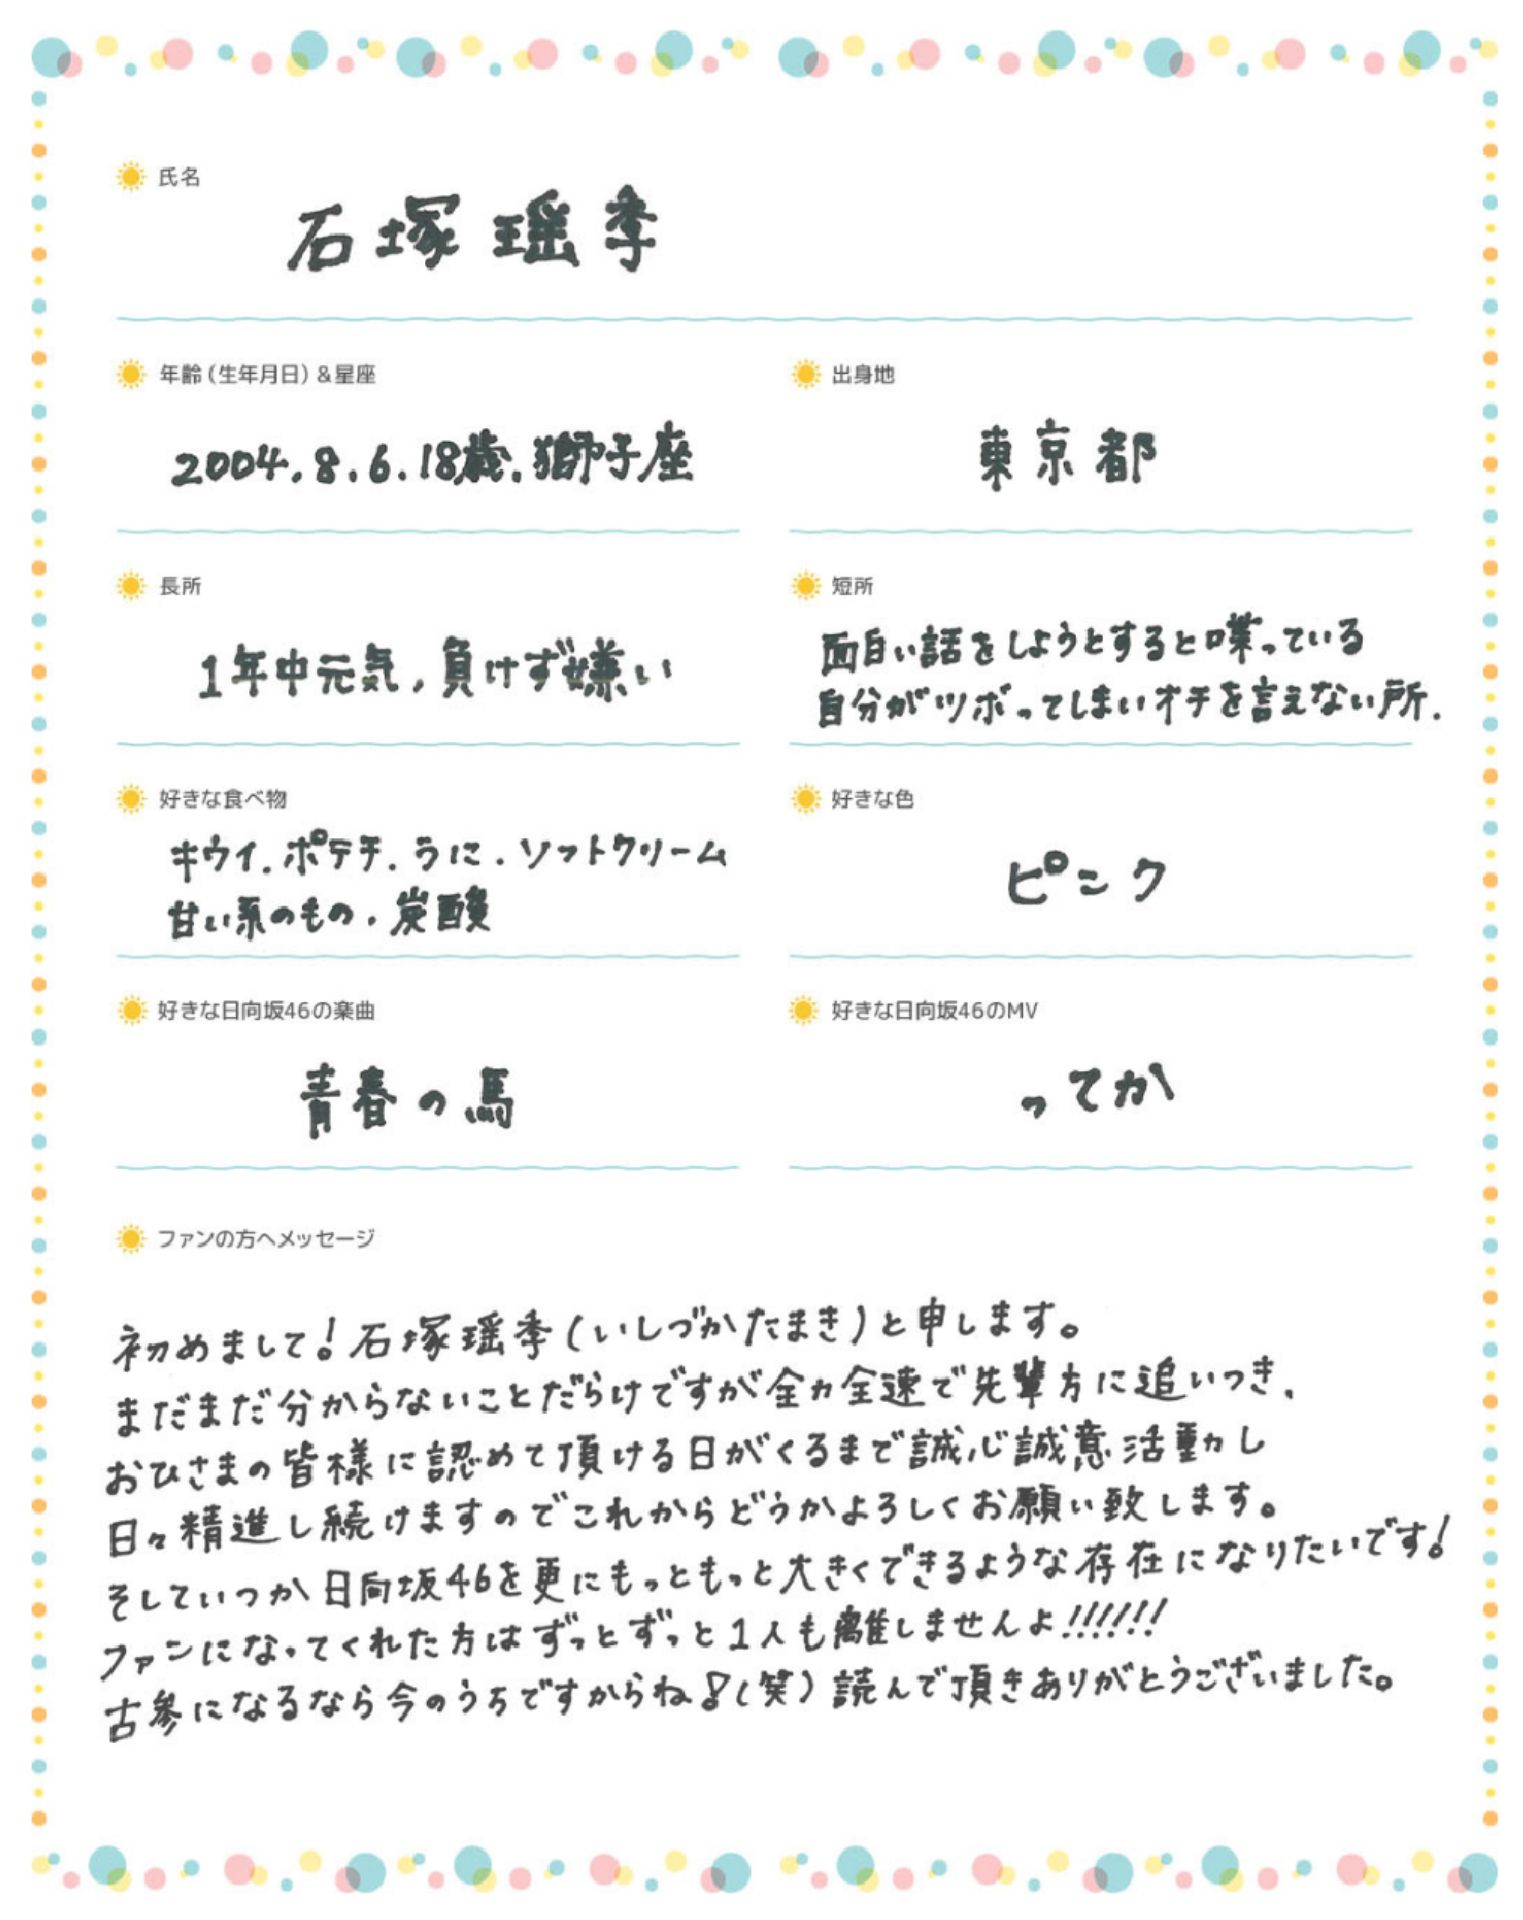 氏名
石塚瑶季
年齢(生年月日)&星座
2004.8.6.18歳.獅子座
出身地
東京都
長所
1年中元気,負けず嫌い
短所
面白い話をしようとすると喋っている
自分がツボってしまいオチを言えない所.
好きな食べ物
キウイ.ポテチ.うに.ソフトクリーム
甘い系のもの.炭酸
好きな色
ピンク
好きな日向坂46の楽曲
青春の馬
好きな日向坂46のMV
ってか
ファンの方へメッセージ
初めまして!石塚瑶季(いしづかたまき)と申します。
まだまだ分からないことだらけですが全力全速で先輩方に追いつき、
おひさまの皆様に認めて頂ける日がくるまで誠心誠意活動し
日々精進し続けますのでこれからどうかよろしくお願い致します。
そしていつか日向坂46を更にもっともっと大きくできるような存在になりたいです!
ファンになってくれた方はずっとずっと1人も離しませんよ!!!!!!
古参になるなら今のうちですからね!(笑)読んで頂きありがとうございました。